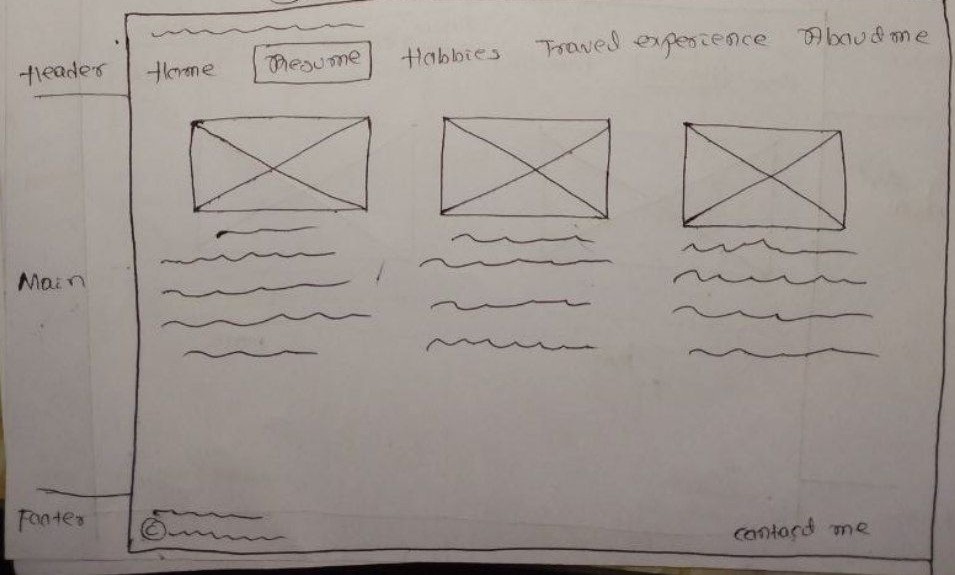 Header
Home Resume Hobbies Traved experience Aboudme
Main
Footer
© contact me